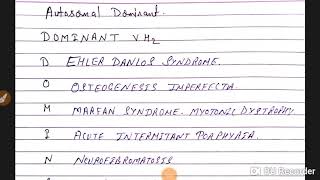 Autosomal Dominant.
DOMINANT VH2
D EHLER DANLOS SYNDROME.
O OSTEOGENESIS IMPERFECTA.
M MARFAN SYNDROME. MYOTONIC DYSTROPHY.
I ACUTE INTERMITANT PORPHYRIA.
N NEUROFIBROMATOSIS
DU Recorder